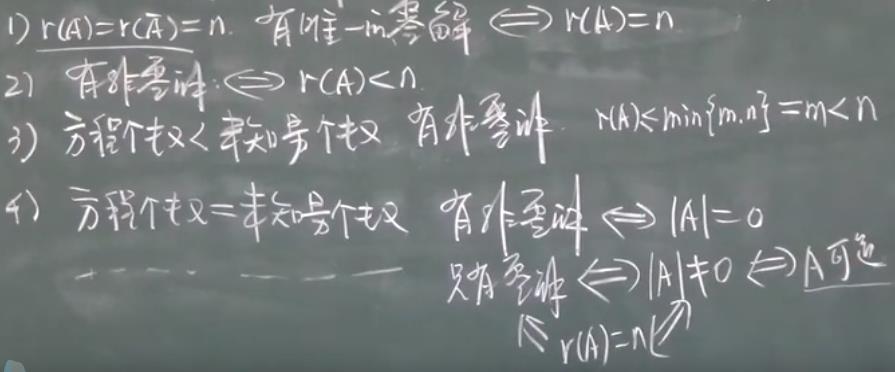 1) r(A)=r(Ā)=n. 有唯一的零解 ⇔ r(A)=n
2) 有非零解 ⇔ r(A)<n.
3) 方程个数<未知量个数 有非零解. r(A)≤min{m.n}=m<n
4) 方程个数=未知量个数 有非零解 ⇔ |A|=0
只有零解 ⇔ |A|≠0 ⇔ A可逆
⇖ r(A)=n ⇗